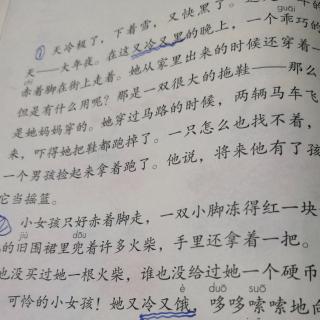 guāi
①天冷极了，下着雪，又快黑了。
天——大年夜。在这又冷又黑的晚上，一个乖巧的
赤着脚在街上走着。她从家里出来的时候还穿着一
但是有什么用呢？那是一双很大的拖鞋——那么
是她妈妈穿的。她穿过马路的时候，两辆马车飞
来，吓得她把鞋都跑掉了。一只怎么也找不着，
一个男孩捡起来拿着跑了。他说，将来他有了孩
它当摇篮。
小女孩只好赤着脚走，一双小脚冻得红一块
jiù dōu
的旧围裙里兜着许多火柴，手里还拿着一把。
也没买过她一根火柴，谁也没给过她一个硬币
è duō suō
可怜的小女孩！她又冷又饿，哆哆嗦嗦地向